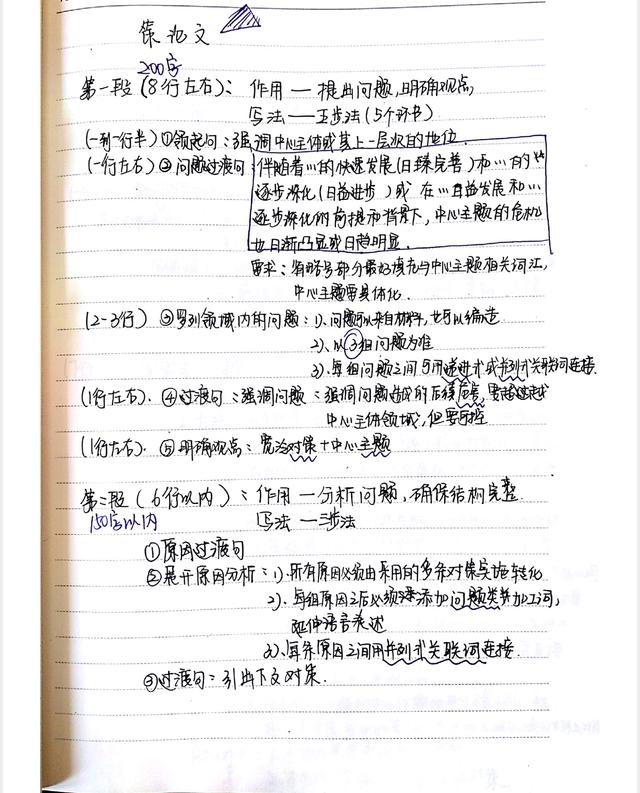 策论文
200字
第一段(8行左右): 作用—提出问题,明确观点,
写法——五步法(5个环节)
(一到一行半)①领起句:强调中心主体或其上一层次的地位.
(一行左右)②问题过渡句:伴随着…的快速发展(日臻完善)和…的
逐步深化(日益进步)或在…日益发展和…
逐步深化的前提和背景下,中心主题的危机
也日渐凸显或日趋明显.
要求:省略号部分最好填充与中心主题相关词汇,
中心主题要具体化.
(2-3行) ③罗列领域内的问题:1)、问题可以来自材料,也可以编造
2)、以③组问题为准
3)、每组问题之间与用递进式或并列式关联词连接.
(1行左右). ④过渡句:强调问题:强调问题造成的后续危害,要超过
中心主体领域,但要可控
(1行左右). ⑤明确观点:宽泛对策+中心主题
第二段(6行以内):作用—分析问题,确保结构完整.
150字以内
写法—三步法
①原因过渡句
②展开原因分析:1)、所有原因必须由采用的多条对策实施转化
2)、每组原因之后必须添加问题类并加工词,
延伸语言表述
3)、每条原因之间用并列式关联词连接.
③过渡句:引出下文对策.